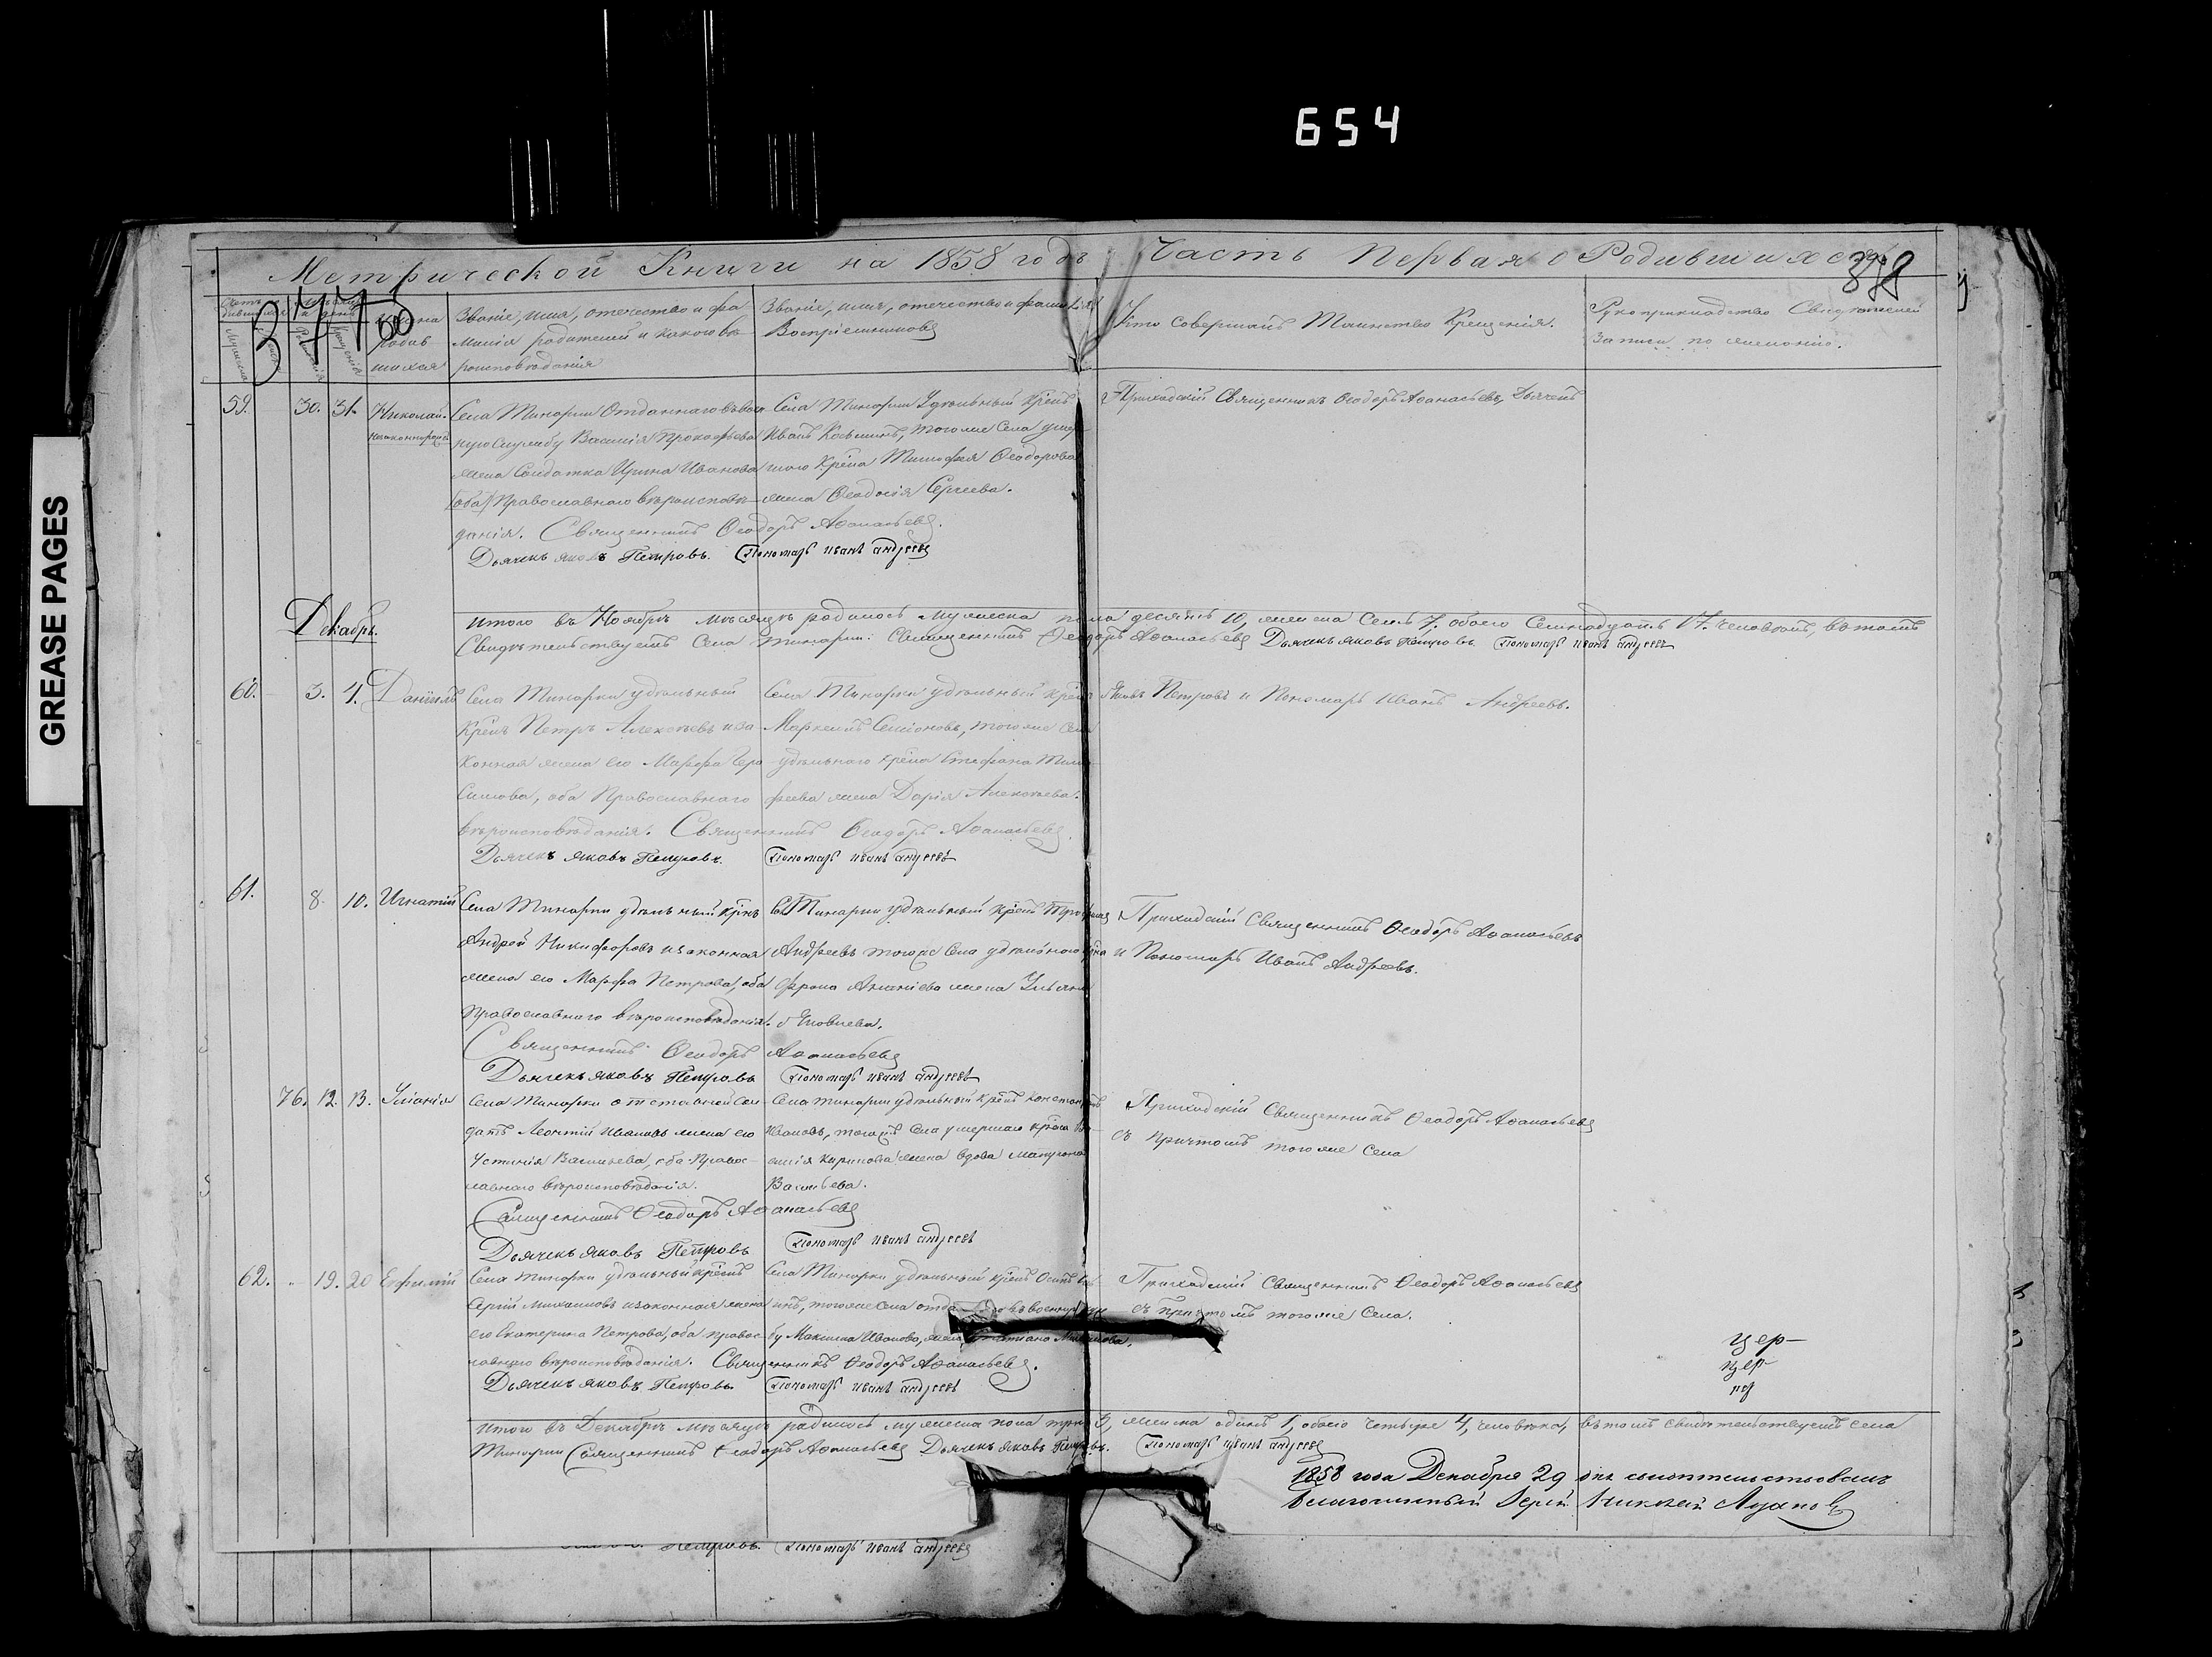 654
GREASE PAGES
Метрической Книги на 1858 годъ Часть Первая о Родившихся
377 об
378
Имена родив-
шихся
Званіе, имя, отечество и фа-
милія родителей и какого вѣ-
роисповѣданія
Званіе, имя, отечество и фамилія
Воспріемниковъ
Кто совершалъ Таинство Крещенія.
Рукоприкладство Свидѣтелей
записи по желанію.
59. 30. 31. Николай незаконнорож.
Села Тинарки Отданнаго въ воен-
ную службу Василія Прокофьева
жена Солдатка Ирина Иванова
(оба) Православнаго вѣроисповѣ-
данія. Священникъ Ѳеодоръ Аѳанасьевъ.
Дьячекъ Яковъ Петровъ. Пономарь Иванъ Андреевъ
Села Тинарки Удѣльный Крѣнъ
Иванъ Козьминъ, того же Села
Крѣна Тимофея Ѳеодорова
жена Ѳеодосія Сергеева.
Приходскій Священникъ Ѳеодоръ Аѳанасьевъ, Дьячекъ
Декабрь.
Итого въ Ноябрѣ мѣсяцѣ родилось мужеска пола десять 10, женска Семь 7. обоего Семнадцать 17. человѣкъ, въ томъ
Свидѣтельствуетъ Села Тинарки: Священникъ Ѳеодоръ Аѳанасьевъ Дьячекъ Яковъ Петровъ. Пономарь Иванъ Андреевъ
60. 3. 4. Даніилъ
Села Тинарки удѣльный
Крѣнъ Петръ Алексѣевъ и за-
конная жена его Марѳа Гера-
симова, оба Православнаго
вѣроисповѣданія. Священникъ Ѳеодоръ Аѳанасьевъ.
Дьячекъ Яковъ Петровъ. Пономарь Иванъ Андреевъ
Села Тинарки удѣльный крѣнъ
Маркелъ Семіоновъ, того же Села
удѣльнаго крѣна Стефана Тимо-
феева жена Дарія Алексѣева.
Яковъ Петровъ и Пономарь Иванъ Андреевъ.
61. 8. 10. Игнатій
Села Тинарки удѣльный крѣнъ
Андрей Никифоровъ и законная
жена его Марѳа Петрова, оба
Православнаго вѣроисповѣданія.
Священникъ Ѳеодоръ Аѳанасьевъ
Дьячекъ Яковъ Петровъ Пономарь Иванъ Андреевъ
С. Тинарки удѣльный крѣнъ
Андреевъ того же Села удѣльнаго крѣна
жена Ульяна
Яковлева.
Приходскій Священникъ Ѳеодоръ Аѳанасьевъ
и Пономарь Иванъ Андреевъ.
76. 12. 13. Уліанія
Села Тинарки отставной сол-
датъ Леонтій Ивановъ жена его
Устинія Васильева, оба Правос-
лавнаго вѣроисповѣданія.
Священникъ Ѳеодоръ Аѳанасьевъ
Дьячекъ Яковъ Петровъ Пономарь Иванъ Андреевъ
Села Тинарки удѣльный крѣнъ
Ивановъ, того же Села умершаго крѣна
жена вдова
Васильева.
Приходскій Священникъ Ѳеодоръ Аѳанасьевъ
съ причтомъ того же Села
62. 19. 20 Ефимій
Села Тинарки удѣльный крѣнъ
Сергій Михайловъ и законная жена
его Екатерина Петрова, оба правос-
лавнаго вѣроисповѣданія. Священникъ Ѳеодоръ Аѳанасьевъ.
Дьячекъ Яковъ Петровъ Пономарь Иванъ Андреевъ
Села Тинарки удѣльный крѣнъ Осипъ
того же Села
бу Максима Иванова, жена
Приходскій Священникъ Ѳеодоръ Аѳанасьевъ
съ причтомъ того же Села.
Итого въ Декабрѣ мѣсяцѣ родилось мужеска пола три 3, женска одинъ 1, обоего четыре 4, человѣка, въ томъ свидѣтельствуетъ села
Тинарки Священникъ Ѳеодоръ Аѳанасьевъ Дьячекъ Яковъ Петровъ. Пономарь Иванъ Андреевъ
1858 года Декабря 29 дня свидѣтельствовалъ
Благочинный Іерей
Петровъ. Пономарь Иванъ Андреевъ